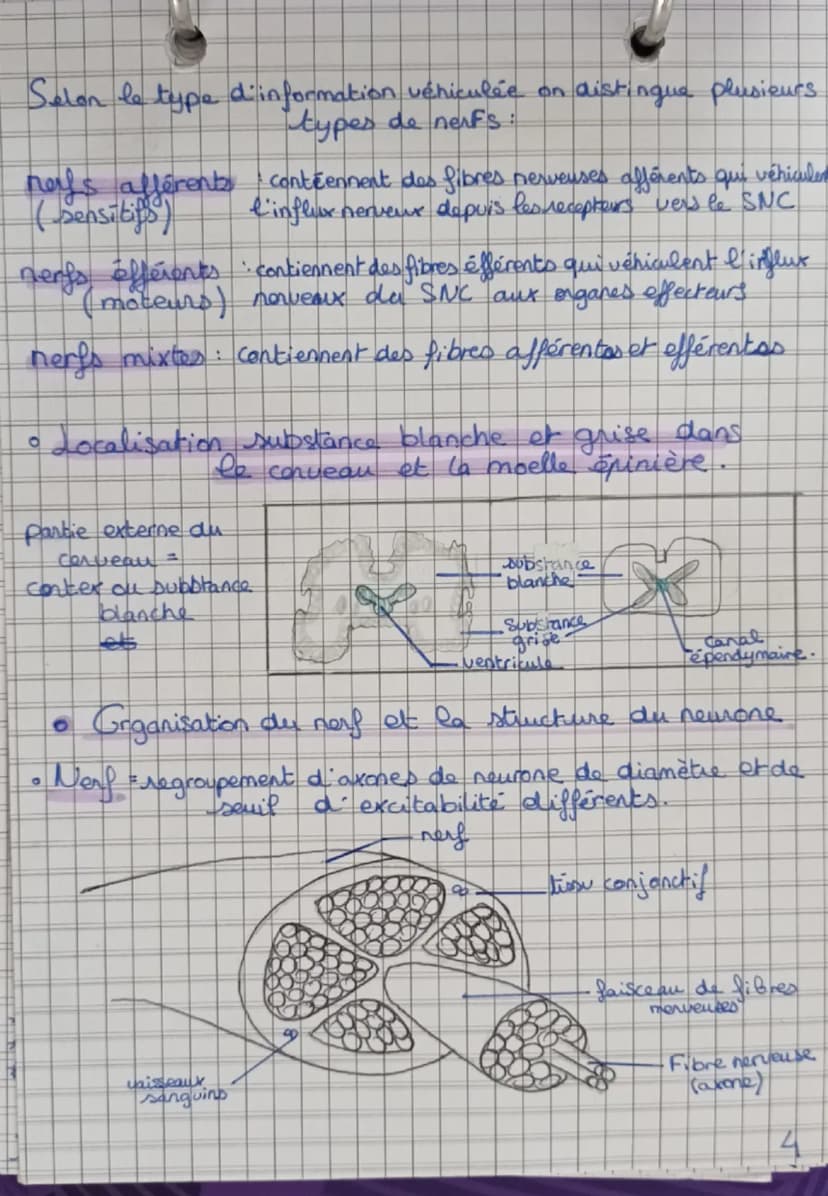 Selon le type d'information véhiculée on distingue plusieurs
types de nerfs :
nerfs afférents : contiennent des fibres nerveuses afférents qui véhiculent
(sensitifs) l'influx nerveux depuis les recepteurs vers le SNC
nerfs éfférents : contiennent des fibres éfférents qui véhiculent l'influx
(moteurs) nerveaux du SNC aux organes effecteurs
nerfs mixtes : contiennent des fibres afférentes et efférentes
Localisation substance blanche et grise dans
le cerveau et la moelle épinière.
partie externe du
cerveau =
cortex ou substance
blanche
et
substance
blanche
substance
grise
ventricule
canal
épendymaire.
Organisation du nerf et la structure du neurone
Nerf = regroupement d'axones de neurone de diamètre et de
seuil d'excitabilité différents.
nerf
tissu conjonctif
faisceau de fibres
nerveuses
Fibre nerveuse
(axone)
vaisseaux
sanguins
4